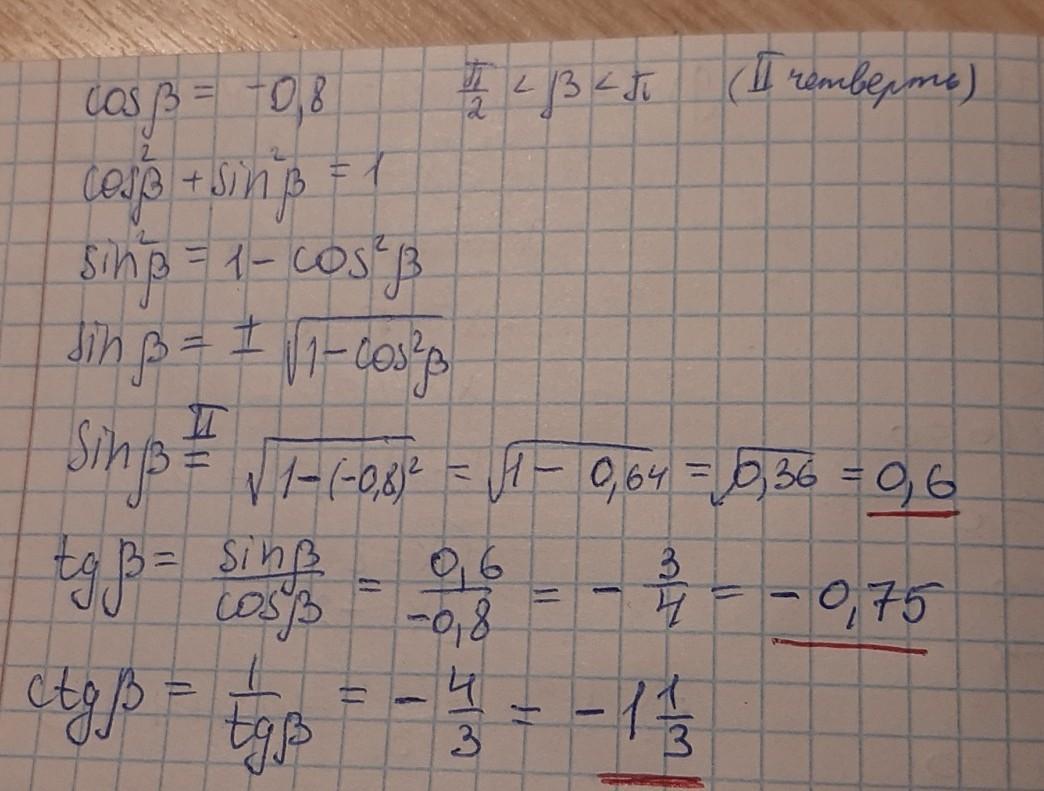 cosβ = -0,8 π/2 < β < π (II четверть)
cos²β + sin²β = 1
sin²β = 1 - cos²β
sinβ = ± √(1-cos²β)
sinβ =^II √(1-(-0,8)²) = √(1 - 0,64) = √0,36 = 0,6
tgβ = sinβ/cosβ = 0,6/-0,8 = - 3/4 = - 0,75
ctgβ = 1/tgβ = - 4/3 = - 1 1/3